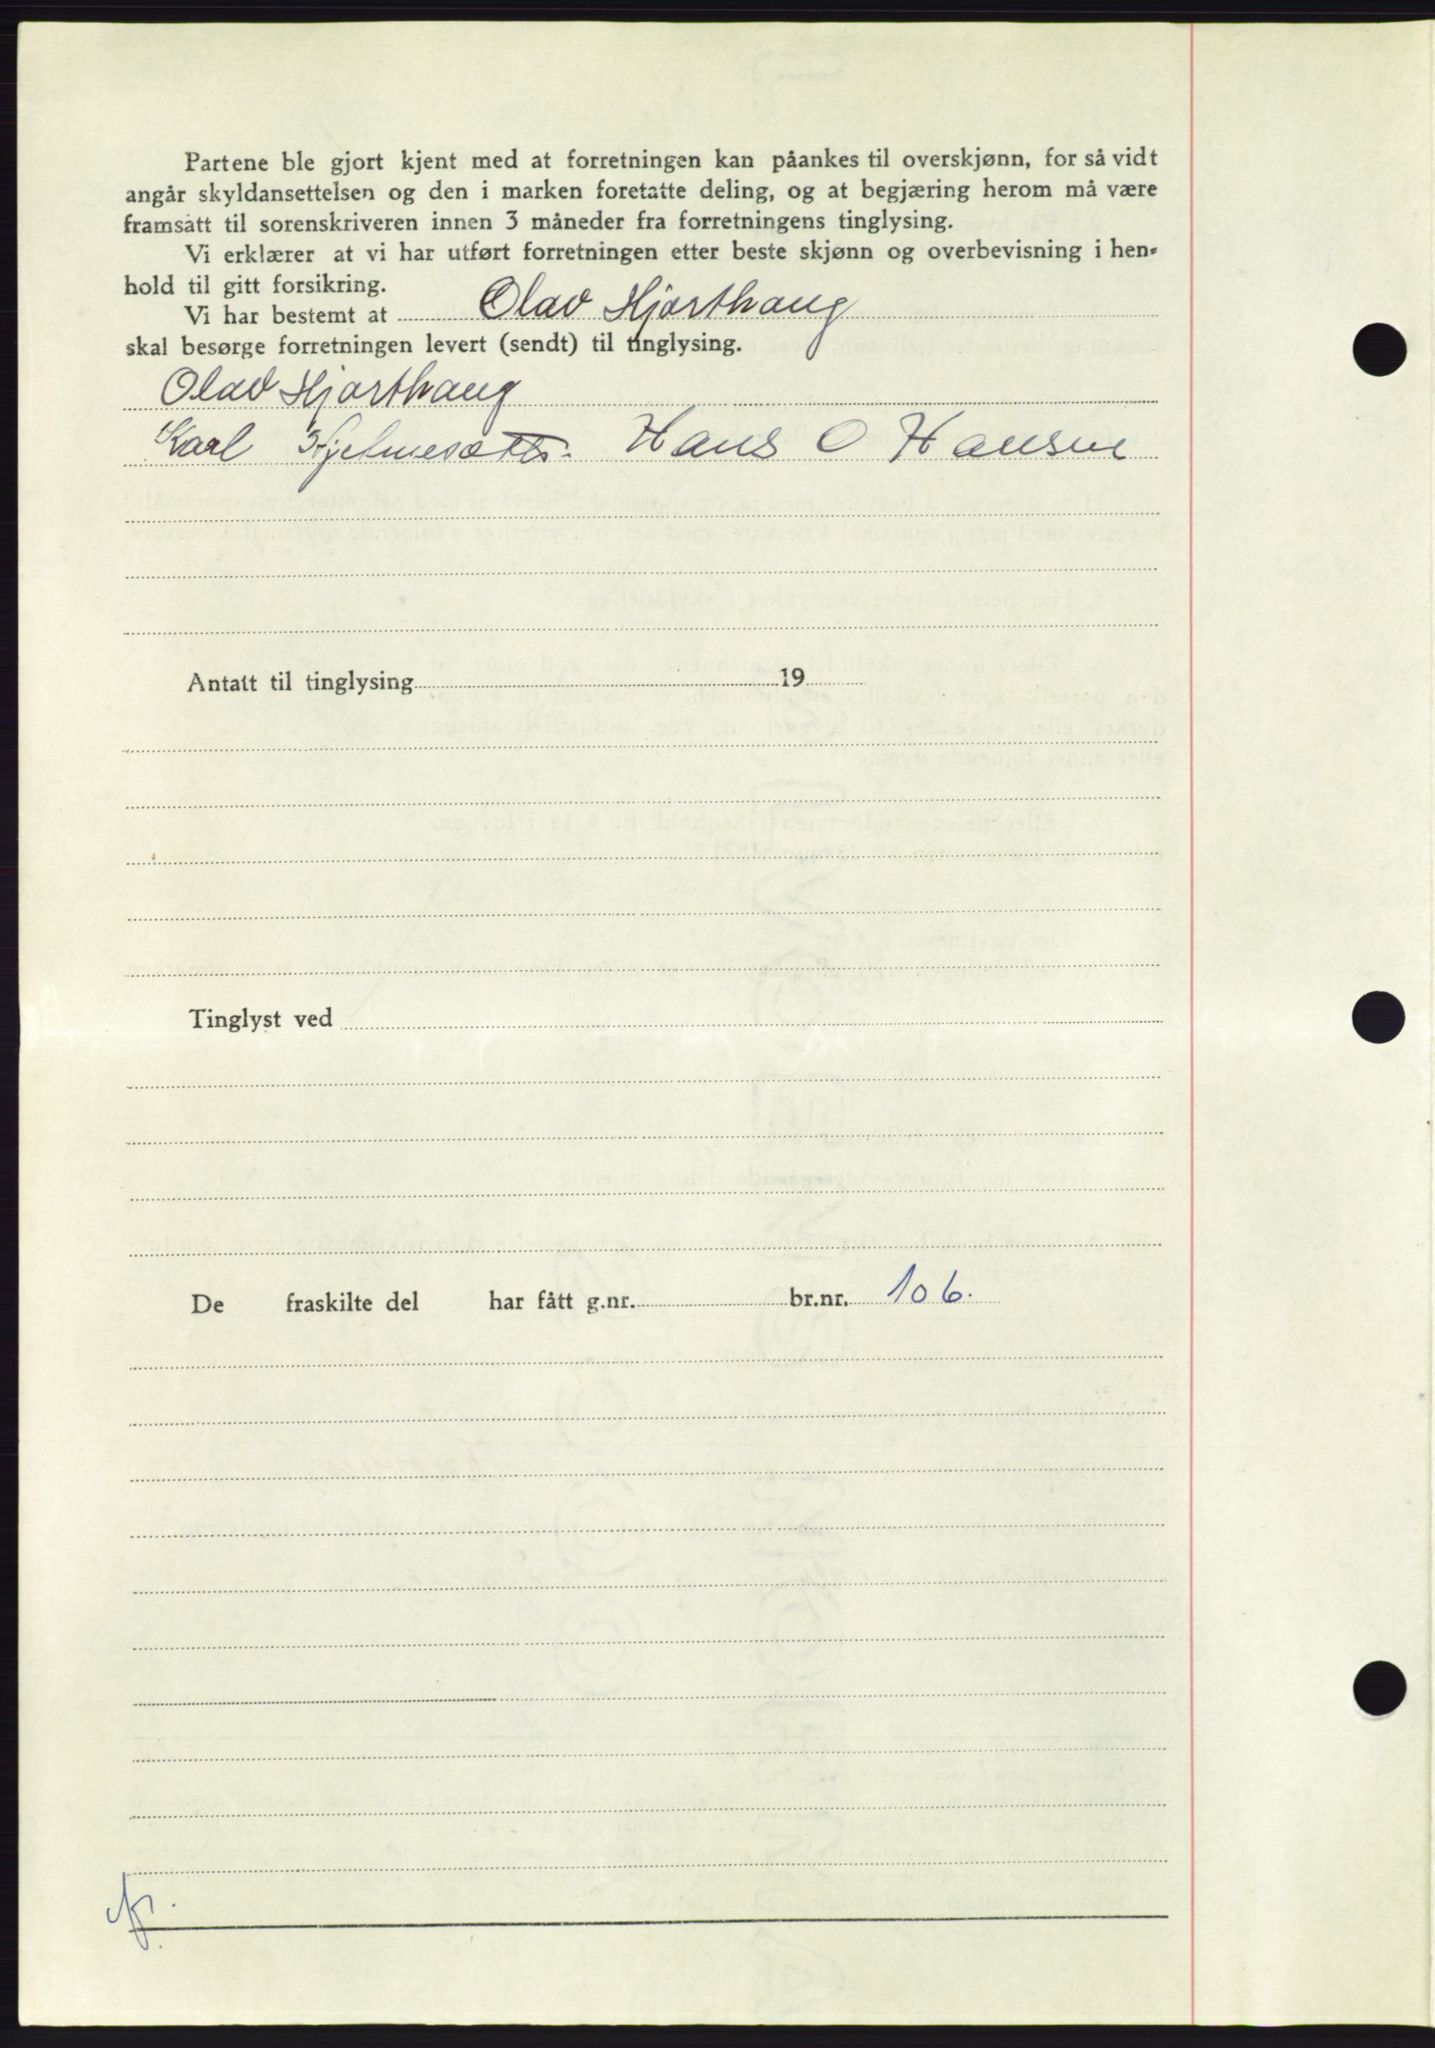 Partene ble gjort kjent med at forretningen kan påankes til overskjønn, for så vidt
angår skyldansettelsen og den i marken foretatte deling, og at begjæring herom må være
framsatt til sorenskriveren innen 3 måneder fra forretningens tinglysing.
Vi erklærer at vi har utført forretningen etter beste skjønn og overbevisning i hen-
hold til gitt forsikring.
Vi har bestemt at Olav Hjorthaug
skal besørge forretningen levert (sendt) til tinglysing.
Olav Hjorthaug
Karl Hans O Hansen
Antatt til tinglysing 19
Tinglyst ved
De fraskilte del har fått g.nr. br.nr. 106.